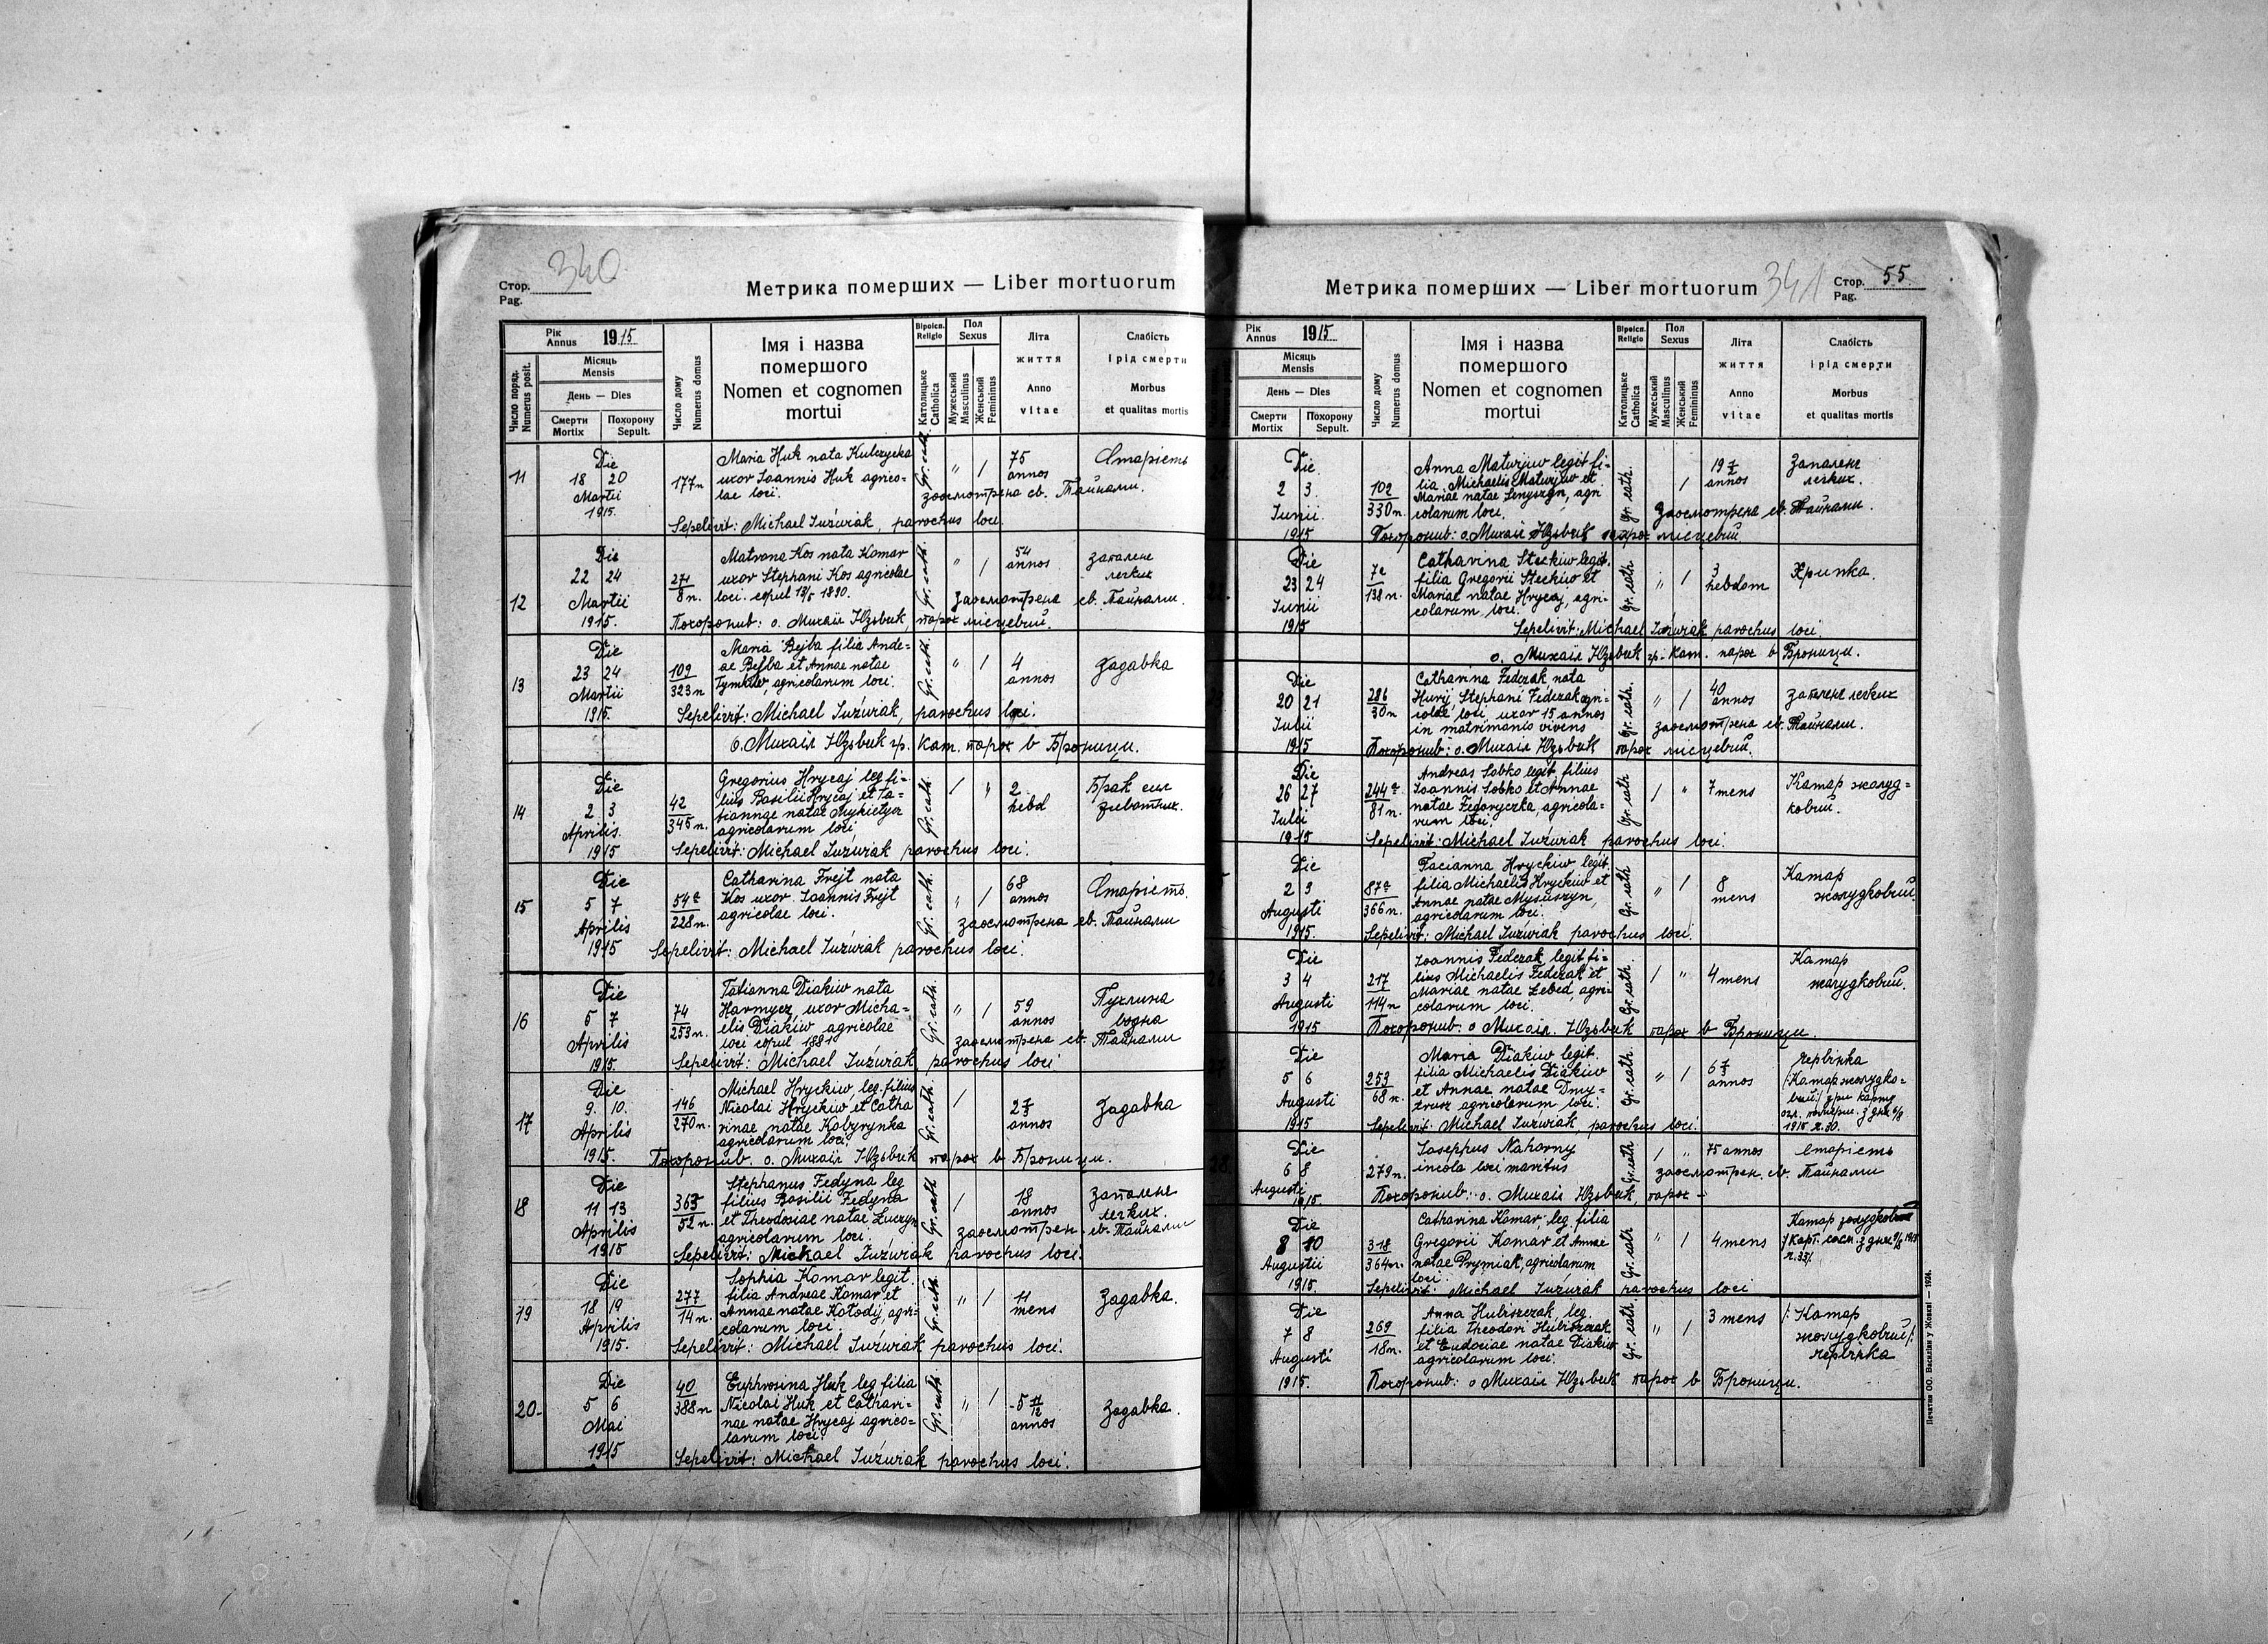 340
Стор.
Pag.
Метрика померших — Liber mortuorum
Рік
Annus
1915
Місяць
Mensis
День — Dies
Смерти
Mortix
Похорону
Sepult.
Число поряд.
Numerus posit.
Число дому
Numerus domus
Імя і назва
померщого
Nomen et cognomen
mortui
Віроісп.
Religio
Католицьке
Catholica
Пол
Sexus
Мужеський
Masculinus
Женський
Femininus
Літа
життя
Anno
vitae
Слабість
і рід смерти
Morbus
et qualitas mortis
11
Die
18 20
Martii
1915.
177 n
Maria Huk nata Kulczycka
uxor Ioannis Huk agrico-
lae loci.
Gr. cath.
" /
75
annos
Старість
заосмотрена св. Тайнами.
Sepelivit: Michael Iuźwiak, parochus loci.
12
Die
22 24
Martii
1915.
271
8 n.
Matrona Kos nata Komar
uxor Stephani Kos agricolae
loci. copul 1890.
Gr. cath.
" /
54
annos
запалене
легких
Заосмотрена св. Тайнами.
Похоронив: о. Михаіл Юзьвик, парох місцевий.
13
Die
23 24
Martii
1915.
109
323 n
Maria Bejba filia Andre-
ae Bejba et Annae natae
Tymkiw, agricolarum loci.
Gr. cath.
" /
4
annos
Задавка
Sepelivit: Michael Iuźwiak, parochus loci.
о. Михаіл Юзьвик гр. кат. парох в Брониці.
14
Die
2 3
Aprilis.
1915
42
345 n.
Gregorius Hrycaj leg fi-
lius Basilii Hrycaj et Ta-
tiannae natae Mykietycz
agricolarum loci,
Gr. cath.
/ "
2
hebd
Брак сил
животних.
Sepelivit: Michael Iuźwiak parochus loci.
15
Die
5 7
Aprilis
1915
54
228 n.
Catharina Frejt nata
Kos uxor Ioannis Frejt
agricolae loci.
Gr. cath.
" /
68
annos
Старість.
заосмотрена св. Тайнами
Sepelivit: Michael Iuźwiak parochus loci.
16
Die
5 7
Aprilis
1915.
74
253 n.
Tatianna Diakiw nata
Harmycz, uxor Micha-
elis Diakiw agricolae
loci copul 1881
Gr. cath.
" /
59
annos
Пухлина
водна
заосмотрена св. Тайнами
Sepelivit: Michael Iuźwiak parochus loci
17
Die
9. 10.
Aprilis
1915.
146
270 n.
Michael Hryckiw, leg. filius
Nicolai Hryckiw et Catha
rinae natae Kobyrynka
agricolarum loci,
Gr. cath.
/
2
annos
Задавка
Похоронив. о. Михаіл Юзьвик парох в Брониці.
18
Die
11 13
Aprilis
1915
363
52 n.
Stephanus Fedyna leg
filius Basilii Fedyna
et Theodosiae natae Łuczyn
agricolarum loci.
Gr. cath
/
18
annos
запалене
легких.
заосмотрен св. Тайнами
Sepelivit: Michael Iuźwiak parochus loci.
19
Die
18 19
Aprilis
1915.
277
14 n.
Sophia Komar legit.
filia Andreae Komar et
Annae natae Kołodij agri-
colarum loci.
Gr. cath.
" /
11
mens
Задавка.
Sepelivit: Michael Iuźwiak parochus loci.
20.
Die
5 6
Mai
1915
40
388 n
Euphrosina Huk leg filia
Nicolai Huk et Cathari-
nae natae Hrycaj agrico-
larum loci.
Gr. cath.
" /
5 11/12
annos
Задавка.
Sepelivit: Michael Iuźwiak parochus loci.
Метрика померших — Liber mortuorum
341
Стор.
Pag.
55
Рік
Annus
1915
Місяць
Mensis
День — Dies
Смерти
Mortix
Похорону
Sepult.
Число дому
Numerus domus
Імя і назва
померщого
Nomen et cognomen
mortui
Віроісп.
Religio
Католицьке
Catholica
Пол
Sexus
Мужеський
Masculinus
Женський
Femininus
Літа
життя
Anno
vitae
Слабість
і рід смерти
Morbus
et qualitas mortis
Die
2 3.
Iunii.
1915
102
330 n.
Anna Maturjiw legit fi-
lia Michaelis Maturjiw et
Mariae natae Senyszyn, agri
colarum loci.
Gr. cath.
/
19
annos
Запалене
легких.
Заосмотрена св. Тайнами.
Похоронив: о. Михаіл Юзьвик парох місцевий
Die
23 24
Iunii
1915
138 n.
Catharina Steckiw legit.
filia Gregorii Steckiw et
Mariae natae Hrycaj, agri-
colarum loci.
Gr. cath
" /
3
hebdom
Хрипка.
Sepelivit: Michael Iuźwiak parochus loci.
о. Михаіл Юзьвик гр-кат. парох в Брониці.
Die
20 21
Iulii
1915
286
30 n
Catharina Federak nata
Hurij, Stephani Federak agri-
colae loci uxor 15 annos
in matrimonio vivens
Gr. cath.
" /
40
annos
запалене легких
заосмотрена св. Тайнами.
Похоронив: о. Михаіл Юзьвик парох місцевий.
Die
26 27
Iulii
1915
244
81 n.
Andreas Sobko legit. filius
Ioannis Sobko et Annae
natae Fedoryczka, agricola-
rum loci.
Gr. cath
/ "
7 mens
Катар жолуд-
ковий.
Sepelivit: Michael Iuźwiak parochus loci.
Die
2 3
Augusti
1915.
87
366 n.
Tacianna Hryckiw legit
filia Michaelis Hryckiw et
Annae natae Mysyszyn,
agricolarum loci.
Gr. cath
" /
8
mens
Катар
жолудковий.
Sepelivit: Michael Iuźwiak parochus loci.
Die
3 4
Augusti
1915
217
114 n
Ioannis Federak legit fi-
lius Michaelis Federak et
Mariae natae Łebed, agri-
colarum loci.
Gr. cath.
/ "
4 mens
Катар
жолудковий.
Похоронив: о Михаіл. Юзьвик парох в Брониці.
Die
5 6
Augusti
1915
253
68 n.
Maria Diakiw legit.
filia Michaelis Diakiw
et Annae natae Dmy-
trusz agricolarum loci.
Gr. cath.
" /
6
annos
червінка
/Катар жолудко-
вий/
1915 ч. 30.
Sepelivit: Michael Iuźwiak, parochus loci.
28.
Die
6 8
Augusti
1915.
279 n.
Iosephus Nahorny
incola loci maritus
Gr. cath
/ "
75 annos
старість
заосмотрен. св. Тайнами
Похоронив: о. Михаіл Юзьвик, парох -
Die
8 10
Augustii
1915.
318
364 n.
Catharina Komar, leg. filia
Gregorii Komar et Annae
natae Prymiak, agricolarum
loci.
Gr. cath
" /
4 mens
Катар
ч. 33/.
Sepelivit: Michael Iuźwiak parochus loci
Die
7 8
Augusti
1915.
269
18 n.
Anna Hubiszczak leg
filia Theodori Hubiszczak
et Eudociae natae Diakiw
agricolarum loci.
Gr. cath.
" /
3 mens
/: Катар
жолудковий/:
червінка
Похоронив: о Михаіл Юзьвик парох в Брониці.
Печатня ОО. Василіян у Жовкві — 1926.